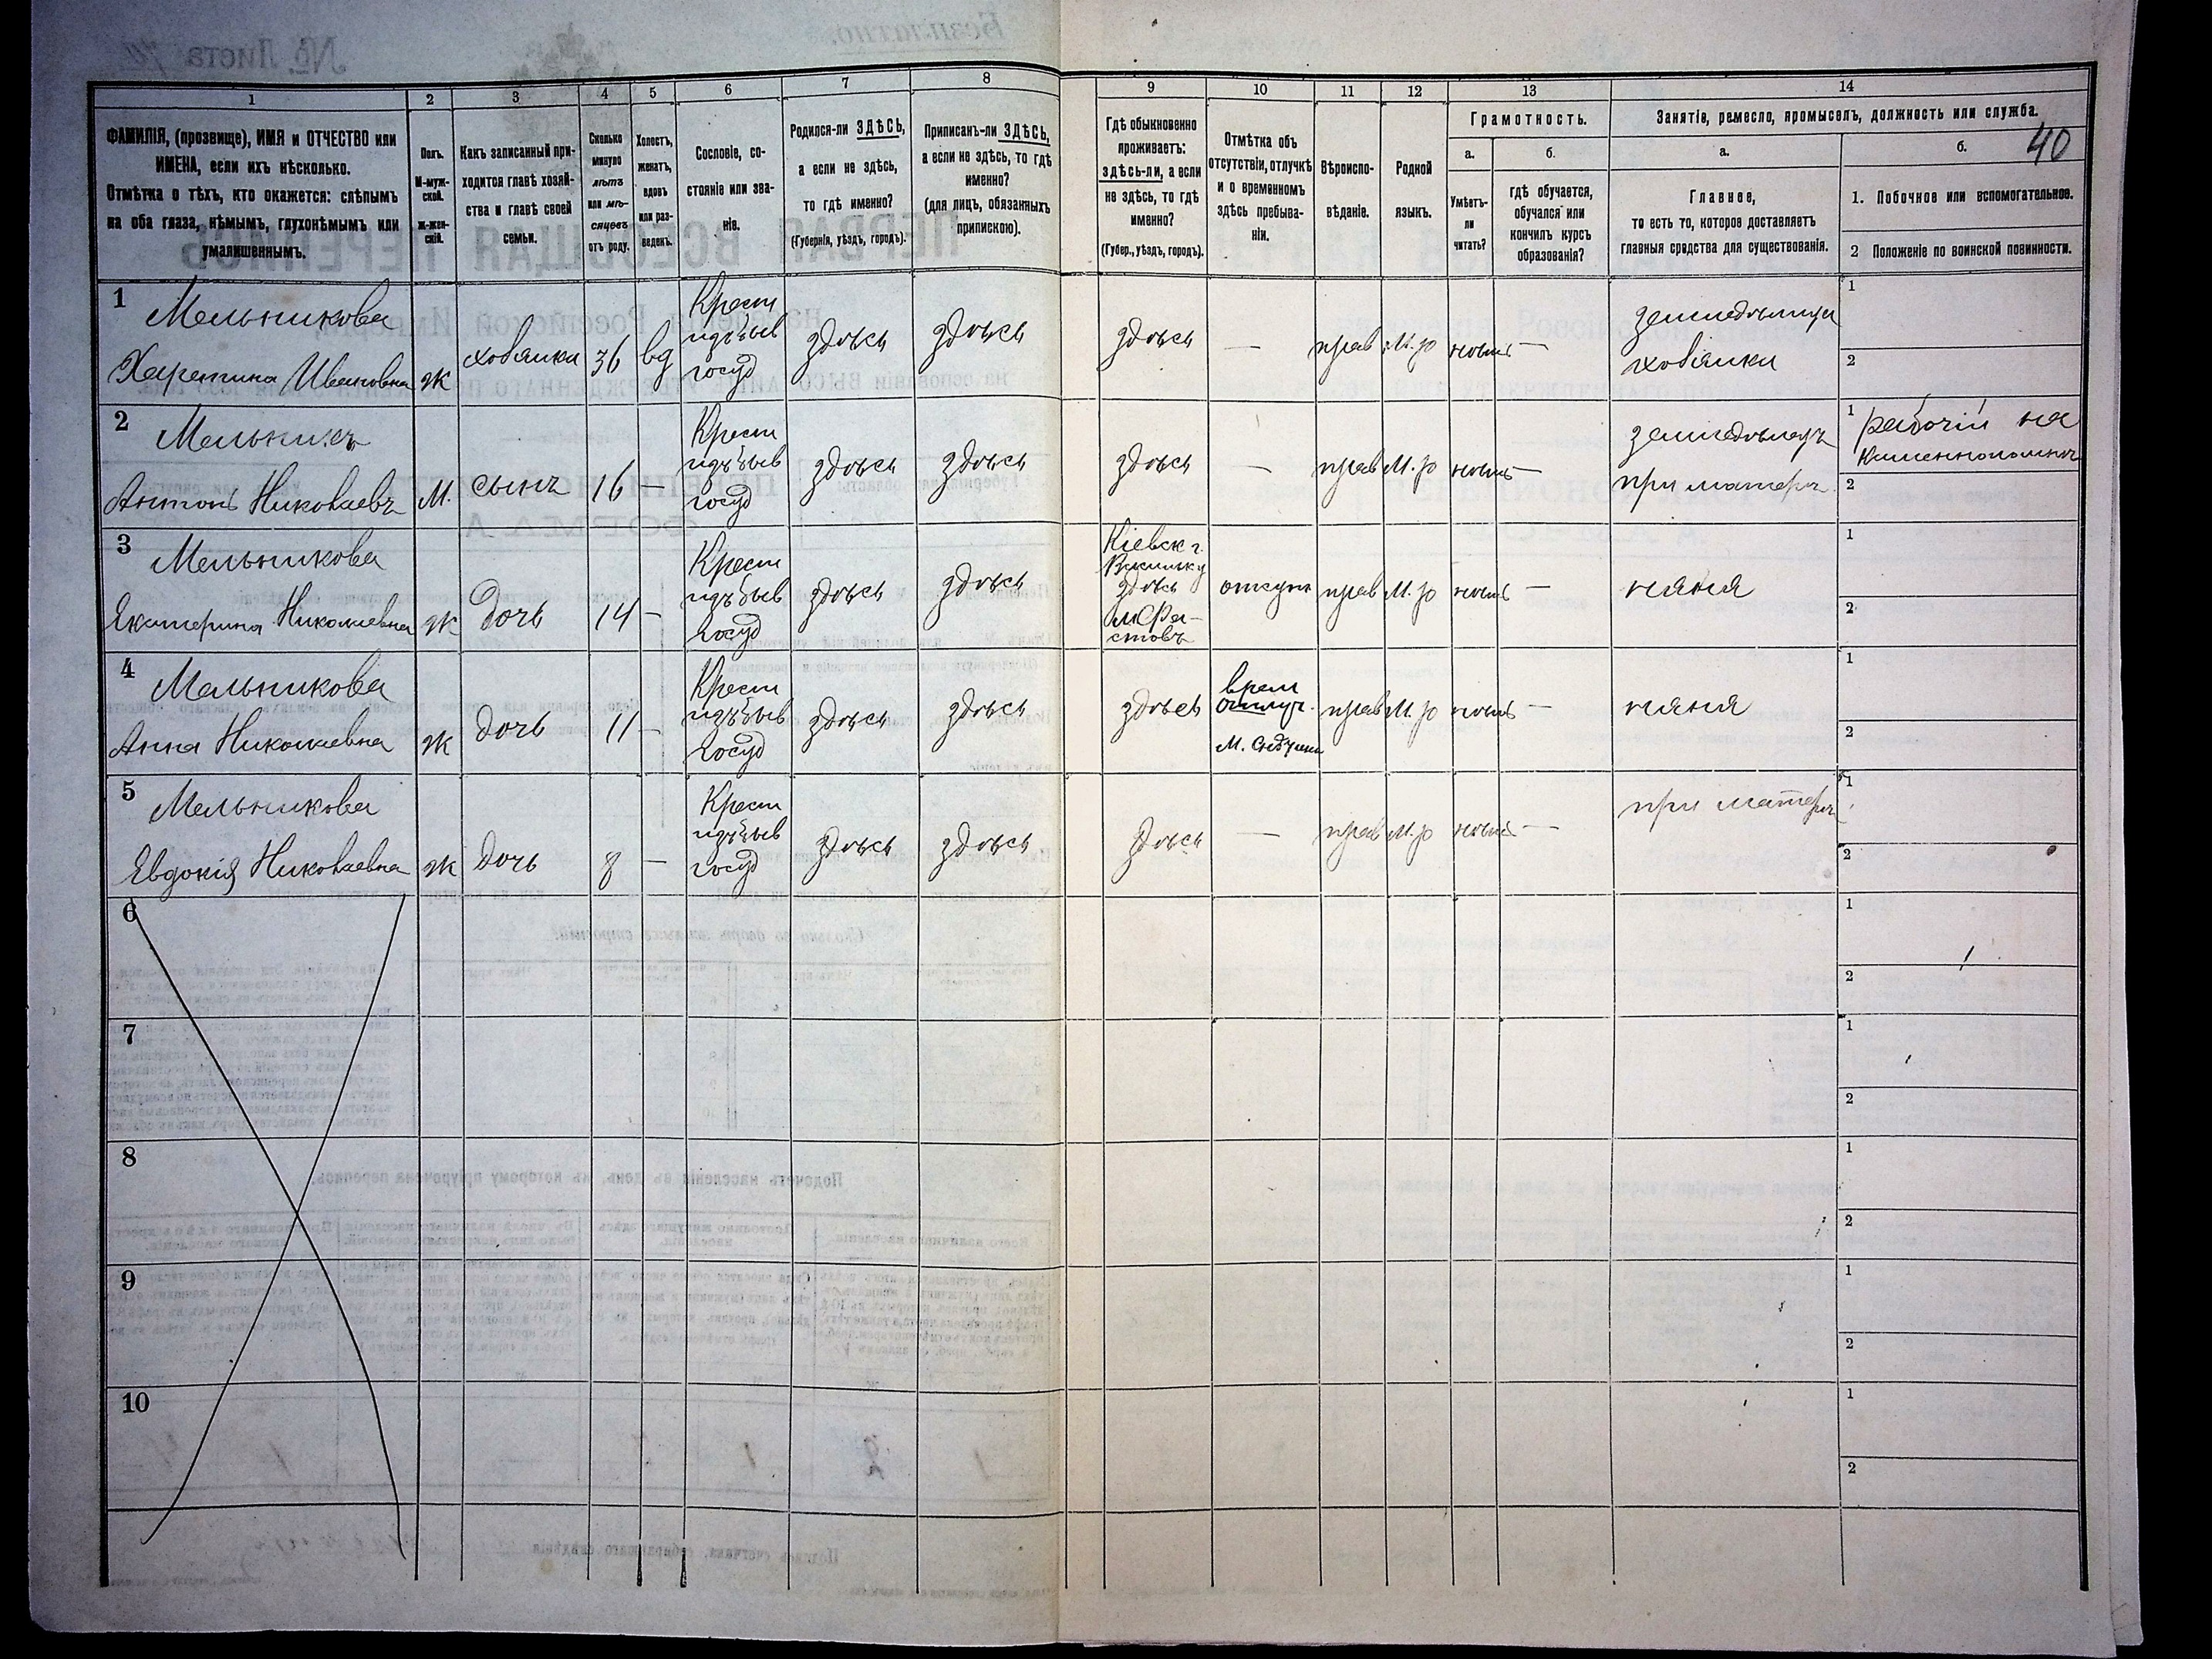 40
1 2 3 4 5 6 7 8 9 10 11 12 13 14
ФАМИЛІЯ, (прозвище), ИМЯ и ОТЧЕСТВО или
ИМЕНА, если ихъ нѣсколько.
Отмѣтка о тѣхъ, кто окажется: слѣпымъ
на оба глаза, нѣмымъ, глухонѣмымъ или
умалишеннымъ.
Полъ.
М-муж-
ской.
Ж-жен-
скій.
Какъ записанный при-
ходится главѣ хозяй-
ства и главѣ своей
семьи.
Сколько
минуло
лѣтъ
или мѣ-
сяцевъ
отъ роду.
Холостъ,
женатъ,
вдовъ
или раз-
веденъ.
Сословіе, со-
стояніе или зва-
ніе.
Родился-ли ЗДѢСЬ,
а если не здѣсь,
то гдѣ именно?
(Губернія, уѣздъ, городъ).
Приписанъ-ли ЗДѢСЬ,
а если не здѣсь, то гдѣ
именно?
(для лицъ, обязанныхъ
припискою).
Гдѣ обыкновенно
проживаетъ:
здѣсь-ли, а если
не здѣсь, то гдѣ
именно?
(Губер., уѣздъ, городъ).
Отмѣтка объ
отсутствіи, отлучкѣ
и о временномъ
здѣсь пребыва-
ніи.
Вѣроиспо-
вѣданіе.
Родной
языкъ.
Грамотность.
а.
Умѣетъ-
ли
читать?
б.
гдѣ обучается,
обучался или
кончилъ курсъ
образованія?
Занятіе, ремесло, промыселъ, должность или служба.
а.
Главное,
то есть то, которое доставляетъ
главныя средства для существованія.
б.
1. Побочное или вспомогательное.
2 Положеніе по воинской повинности.
1 Мельникова
Харетина Ивановна ж хозяйка 36 вд
Крест
изъ быв
госуд
здѣсь здѣсь здѣсь — прав М.р нѣтъ —
земледѣлица
хозяйка
1
2
2 Мельникъ
Антонъ Николаевъ М. сынъ 16 —
Крест
изъ быв
госуд
здѣсь здѣсь здѣсь — прав М.р нѣтъ —
земледѣлецъ
при матери
1 рабочій на
каменноломнѣ
2
3 Мельникова
Екатерина Николаевна ж Дочь 14 —
Крест
изъ быв
госуд
здѣсь здѣсь
Кіевск г.
здѣсь
м Фа-
стовъ
отсут прав М.р нѣтъ —
няня
1
2
4 Мельникова
Анна Николаевна ж дочь 11 —
Крест
изъ быв
госуд
здѣсь здѣсь здѣсь
врем
отлуч.
прав М.р нѣтъ —
няня
1
2
5 Мельникова
Евдокія Николаевна ж дочь 8 —
Крест
изъ быв
госуд
здѣсь здѣсь здѣсь — прав М.р нѣтъ —
при матери
1
2
6
1
2
7
1
2
8
1
2
9
1
2
10
1
2